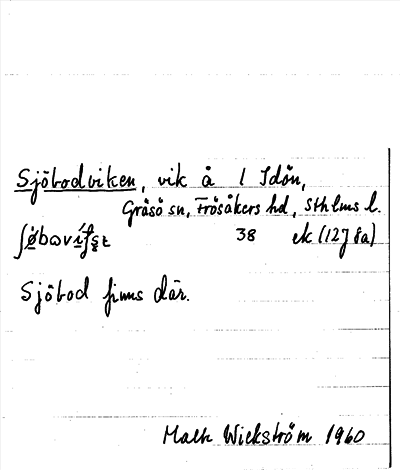 Sjöbodviken, vik å l Idön,
Gräsö sn, Frösåkers hd, Sthlms l.
38 ek (12J 8a)
Sjöbod finns där.
Wickström 1960